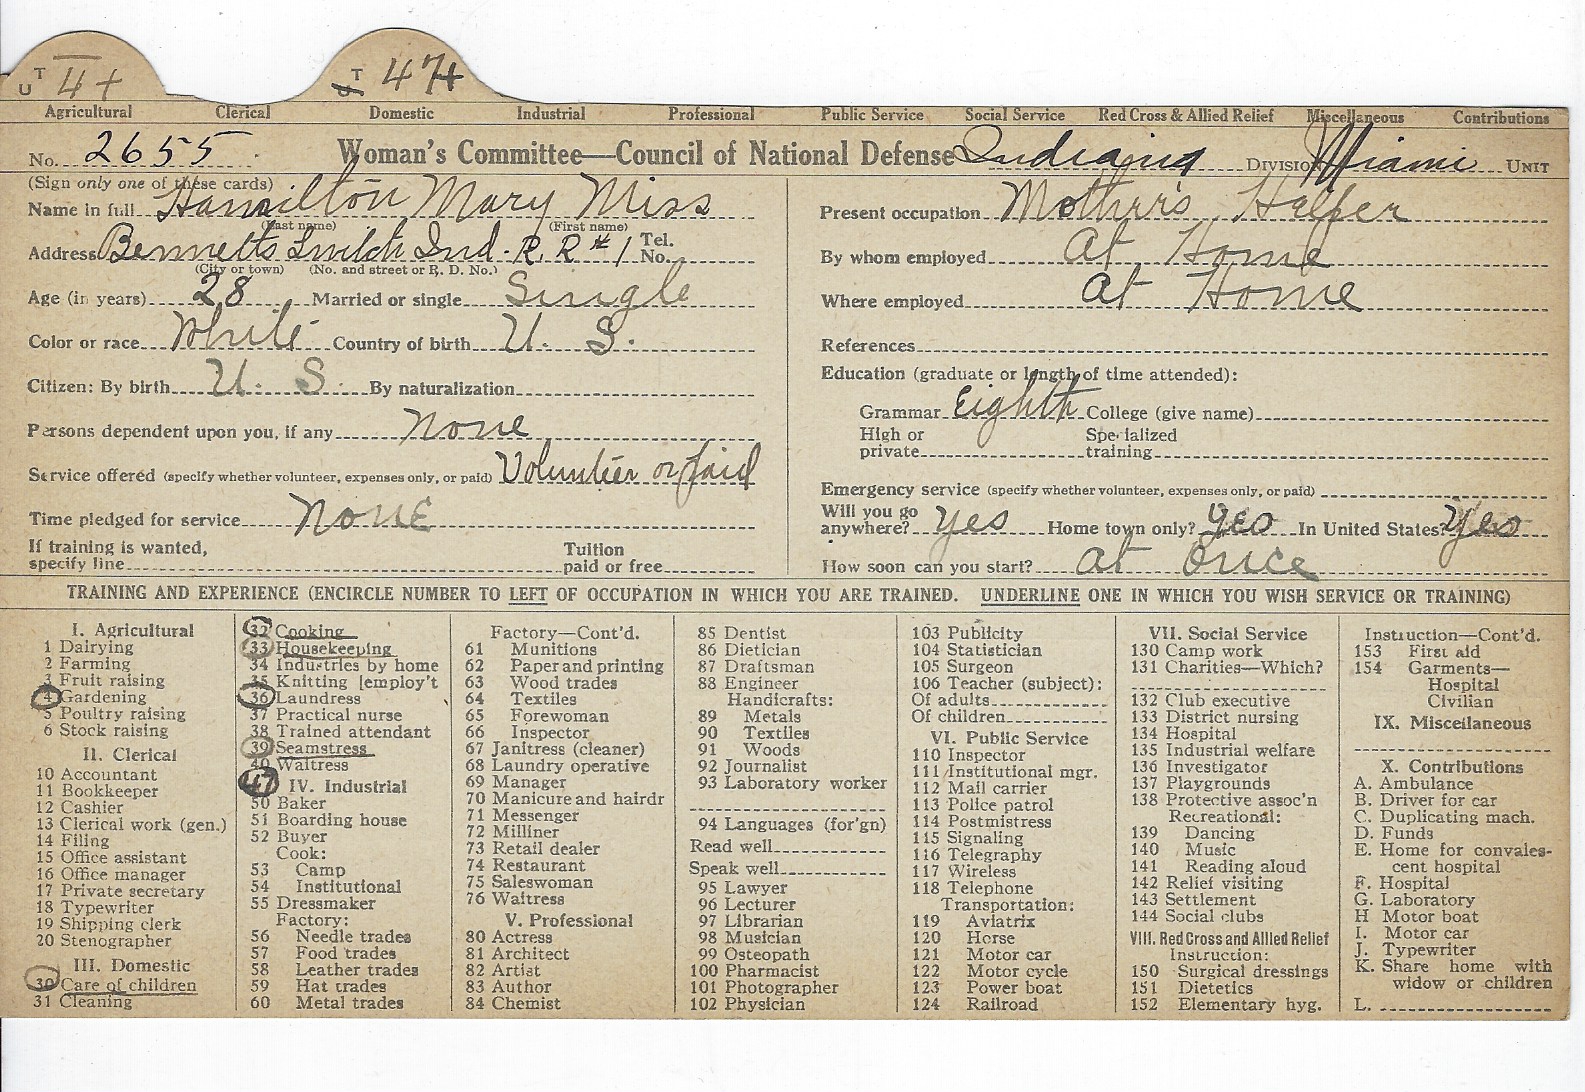 U T 4+ T 47+
Agricultural Clerical Domestic Industrial Professional Public Service Social Service Red Cross & Allied Relief Miscellaneous Contributions
No. 2655 Woman's Committee—Council of National Defense Indiana DIVISION Miami UNIT
(Sign only one of these cards)
Name in full Hamilton Mary Miss
(Last name) (First name)
Address Bennetts Switch Ind. R. R #1 Tel. No.
(City or town) (No. and street or R. D. No.)
Age (in years) 28 Married or single Single
Color or race White Country of birth U. S.
Citizen: By birth U. S. By naturalization
Persons dependent upon you, if any None
Service offered (specify whether volunteer, expenses only, or paid) Volunteer or paid
Time pledged for service None
If training is wanted, specify line Tuition paid or free
Present occupation Mother's Helper
By whom employed At Home
Where employed At Home
References
Education (graduate or length of time attended):
Grammar Eighth College (give name)
High or private Specialized training
Emergency service (specify whether volunteer, expenses only, or paid)
Will you go anywhere? Yes Home town only? Yes In United States? Yes
How soon can you start? At Once
TRAINING AND EXPERIENCE (ENCIRCLE NUMBER TO LEFT OF OCCUPATION IN WHICH YOU ARE TRAINED. UNDERLINE ONE IN WHICH YOU WISH SERVICE OR TRAINING)
I. Agricultural
1 Dairying
2 Farming
3 Fruit raising
4 Gardening
5 Poultry raising
6 Stock raising
II. Clerical
10 Accountant
11 Bookkeeper
12 Cashier
13 Clerical work (gen.)
14 Filing
15 Office assistant
16 Office manager
17 Private secretary
18 Typewriter
19 Shipping clerk
20 Stenographer
III. Domestic
30 Care of children
31 Cleaning
32 Cooking
33 Housekeeping
34 Industries by home
35 Knitting [employ't
36 Laundress
37 Practical nurse
38 Trained attendant
39 Seamstress
40 Waitress
47 IV. Industrial
50 Baker
51 Boarding house
52 Buyer
Cook:
53 Camp
54 Institutional
55 Dressmaker
Factory:
56 Needle trades
57 Food trades
58 Leather trades
59 Hat trades
60 Metal trades
Factory—Cont'd.
61 Munitions
62 Paper and printing
63 Wood trades
64 Textiles
65 Forewoman
66 Inspector
67 Janitress (cleaner)
68 Laundry operative
69 Manager
70 Manicure and hairdr
71 Messenger
72 Milliner
73 Retail dealer
74 Restaurant
75 Saleswoman
76 Waitress
V. Professional
80 Actress
81 Architect
82 Artist
83 Author
84 Chemist
85 Dentist
86 Dietician
87 Draftsman
88 Engineer
Handicrafts:
89 Metals
90 Textiles
91 Woods
92 Journalist
93 Laboratory worker
94 Languages (for'gn)
Read well
Speak well
95 Lawyer
96 Lecturer
97 Librarian
98 Musician
99 Osteopath
100 Pharmacist
101 Photographer
102 Physician
103 Publicity
104 Statistician
105 Surgeon
106 Teacher (subject):
Of adults
Of children
VI. Public Service
110 Inspector
111 Institutional mgr.
112 Mail carrier
113 Police patrol
114 Postmistress
115 Signaling
116 Telegraphy
117 Wireless
118 Telephone
Transportation:
119 Aviatrix
120 Horse
121 Motor car
122 Motor cycle
123 Power boat
124 Railroad
VII. Social Service
130 Camp work
131 Charities—Which?
132 Club executive
133 District nursing
134 Hospital
135 Industrial welfare
136 Investigator
137 Playgrounds
138 Protective assoc'n
Recreational:
139 Dancing
140 Music
141 Reading aloud
142 Relief visiting
143 Settlement
144 Social clubs
VIII. Red Cross and Allied Relief
Instruction:
150 Surgical dressings
151 Dietetics
152 Elementary hyg.
Instruction—Cont'd.
153 First aid
154 Garments—
Hospital
Civilian
IX. Miscellaneous
X. Contributions
A. Ambulance
B. Driver for car
C. Duplicating mach.
D. Funds
E. Home for convales-
cent hospital
F. Hospital
G. Laboratory
H Motor boat
I. Motor car
J. Typewriter
K. Share home with
widow or children
L.